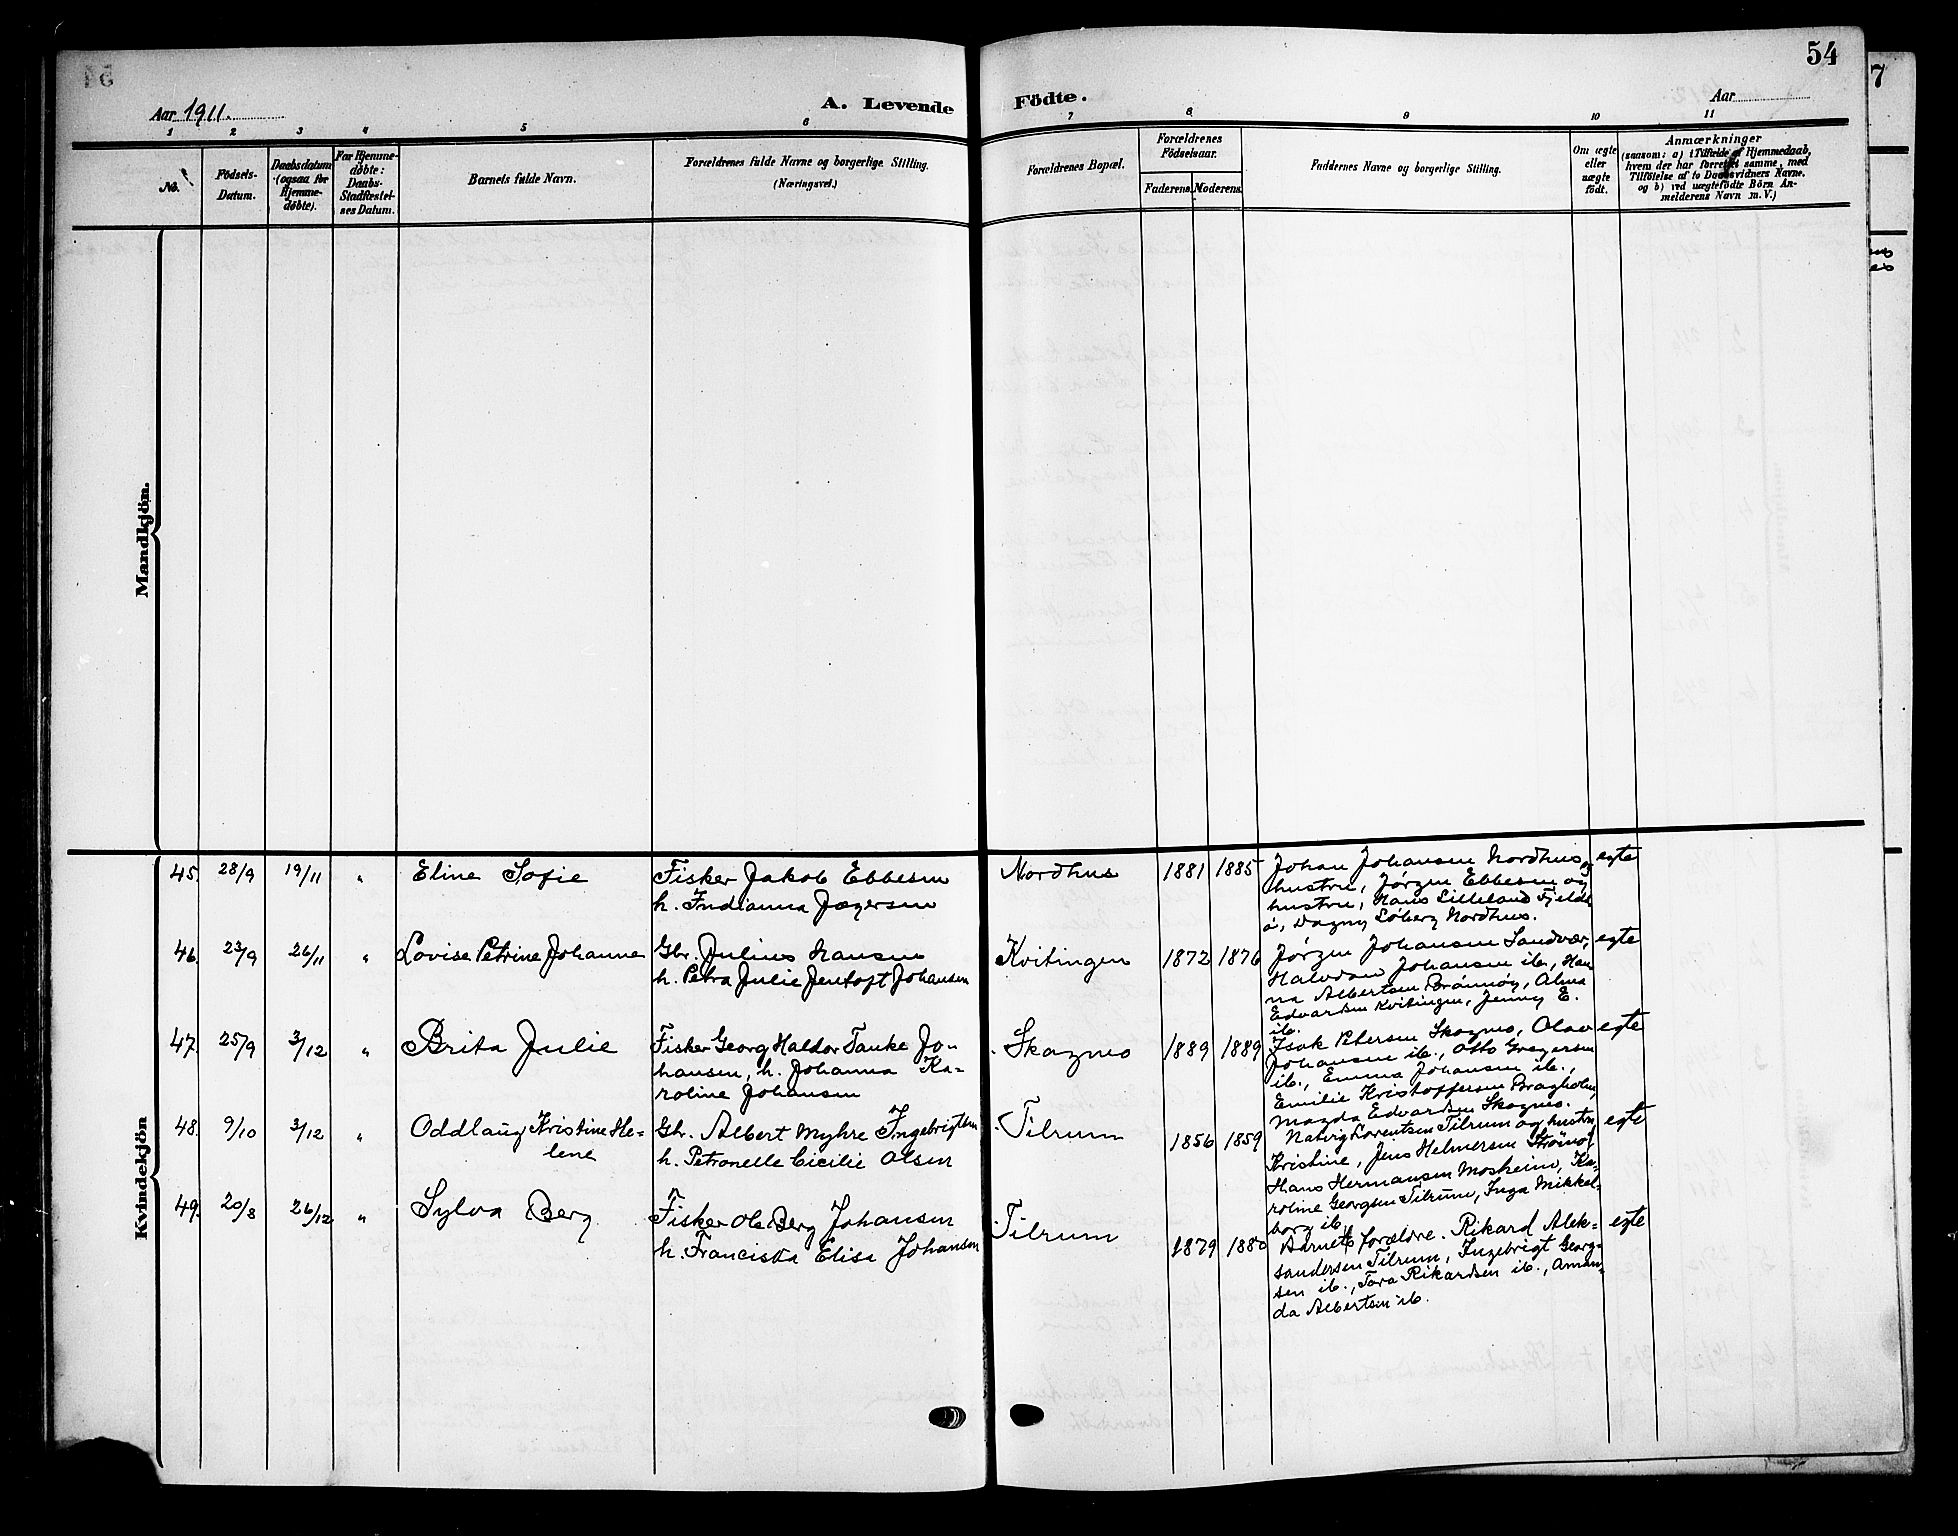 54
7
Aar 1911.
A. Levende
Födte.
Aar
1 2 3 4 5 6 7 8 9 10 11
No.
Födsels-
Datum.
Daabsdatum
(ogsaa for
Hjemme-
døbte).
For Hjemme-
døbte:
Daabs-
Stadfæstel-
ses Datum.
Barnets fulde Navn.
Forældrenes fulde Navne og borgerlige Stilling.
(Næringsvei.)
Forældrenes Bopæl.
Forældrenes
Födselsaar.
Faderens. Moderens.
Faddernes Navne og borgerlige Stilling.
Om ægte
eller
uægte
födt.
Anmærkninger
(saasom: a) i Tilfælde af Hjemmedaab,
hvem der har forrettet samme, med
Tilföielse af to Daabsvidners Navne.
og b) ved uægtefödte Börn An-
melderens Navn m. V.)
Mandkjön.
Kvindekjön
45. 28/9 19/11 " Eline Sofie
Fisker Jakob Ebbesen
h. Indianna Jægersen
Nordhus 1881 1885
Johan Johansen Nordhus og
hustru, Jørgen Ebbesen og
hustru, Hans Lilleland Fjeld-
ö, Dagny Söberg Nordhus.
egte
46. 23/9 26/11 " Lovise Petrine Johanne
Gbr. Julius Hansen
h. Petra Julie Jentoft Johansen
Kvitingen 1872 1876
Jørgen Johansen Sandvær,
Halvdan Johansen ib., Han-
na Albertsen Brönnöy, Alma
Edvardsen Kvitingen, Jenny E.
ib.
egte
47. 25/9 3/12 " Brita Julie
Fisker Georg Haldor Tanke Jo-
hansen, h. Johanna Ka-
roline Johansen
Skogmo 1889 1889
Isak Petersen Skogmo, Olav
Johansen ib., Otto Gregersen
ib., Emma Johansen ib.,
Emilie Kristoffersen Bragholm,
Magda Edvardsen Skogmo.
egte
48. 9/10 3/12 " Oddlaug Kristine He-
lene
Gbr. Albert Myhre Ingebrigtsen
h. Petronelle Cicilie Olsen
Tilrum 1856 1859
Natvig Lorentsen Tilrum og hustru
Kristine, Jens Helmersen Strömöy
Hans Hermansen Mosheim, Ka-
roline Georgsen Tilrum, Inga Mikkel-
borg ib.
egte
49. 20/8 26/12 " Sylva Berg
Fisker Ole Berg Johansen
h. Franciska Elisa Johansen
Tilrum 1879 1880
Barnets forældre. Rikard Alek-
sandersen Tilrum, Ingebrigt Georg-
sen ib., Tora Rikardsen ib., Aman-
da Albertsen ib.
egte